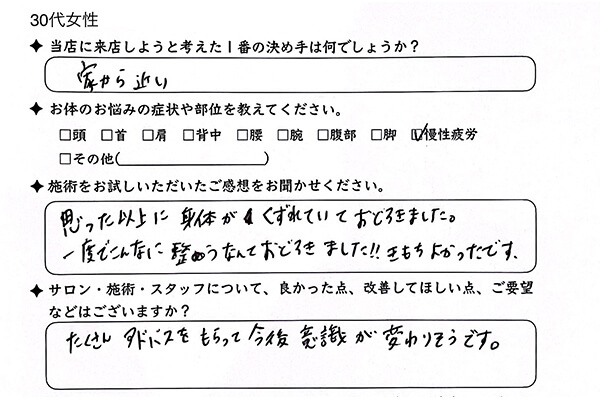 30代女性
✦ 当店に来店しようと考えた1番の決め手は何でしょうか？
家から近い
✦ お体のお悩みの症状や部位を教えてください。
□頭 □首 □肩 □背中 □腰 □腕 □腹部 □脚 ☑慢性疲労
□その他( )
✦ 施術をお試しいただいたご感想をお聞かせください。
思った以上に身体がくずれていておどろきました。
一度でこんなに整うなんておどろきました!! きもちよかったです.
✦ サロン・施術・スタッフについて、良かった点、改善してほしい点、ご要望
などはございますか？
たくさんアドバイスをもらって今後意識が変わりそうです。